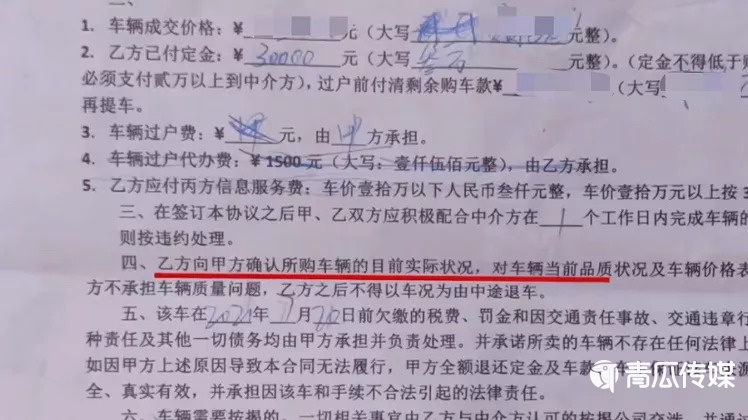 1. 车辆成交价格：¥ 元（大写 元整）。
2. 乙方已付定金：¥ 30000 元（大写 叁万 元整）。（定金不得低于
必须支付贰万以上到中介方），过户前付清剩余购车款¥ （大写
再提车。
3. 车辆过户费：¥ 元，由 甲 方承担。
4. 车辆过户代办费：¥ 1500 元（大写：壹仟伍佰元整），由乙方承担。
5. 乙方应付丙方信息服务费：车价壹拾万以下人民币叁仟元整，车价壹拾万元以上按 3
三、在签订本协议之后甲、乙双方应积极配合中介方在 个工作日内完成车辆的
则按违约处理。
四、乙方向甲方确认所购车辆的目前实际状况，对车辆当前品质状况及车辆价格表
方不承担车辆质量问题，乙方之后不得以车况为由中途退车。
五、该车在2021年 月 日前欠缴的税费、罚金和因交通责任事故、交通违章行
种责任及其他一切债务均由甲方承担并负责处理。并承诺所卖的车辆不存在任何法律上
如因甲方上述原因导致本合同无法履行，甲方全额退还定金及车款
全、真实有效，并承担因该车和手续不合法引起的法律责任。
六、车辆需要按揭的，一切相关事宜由乙方与中介方认可的按揭公司交涉，并通过
青瓜传媒